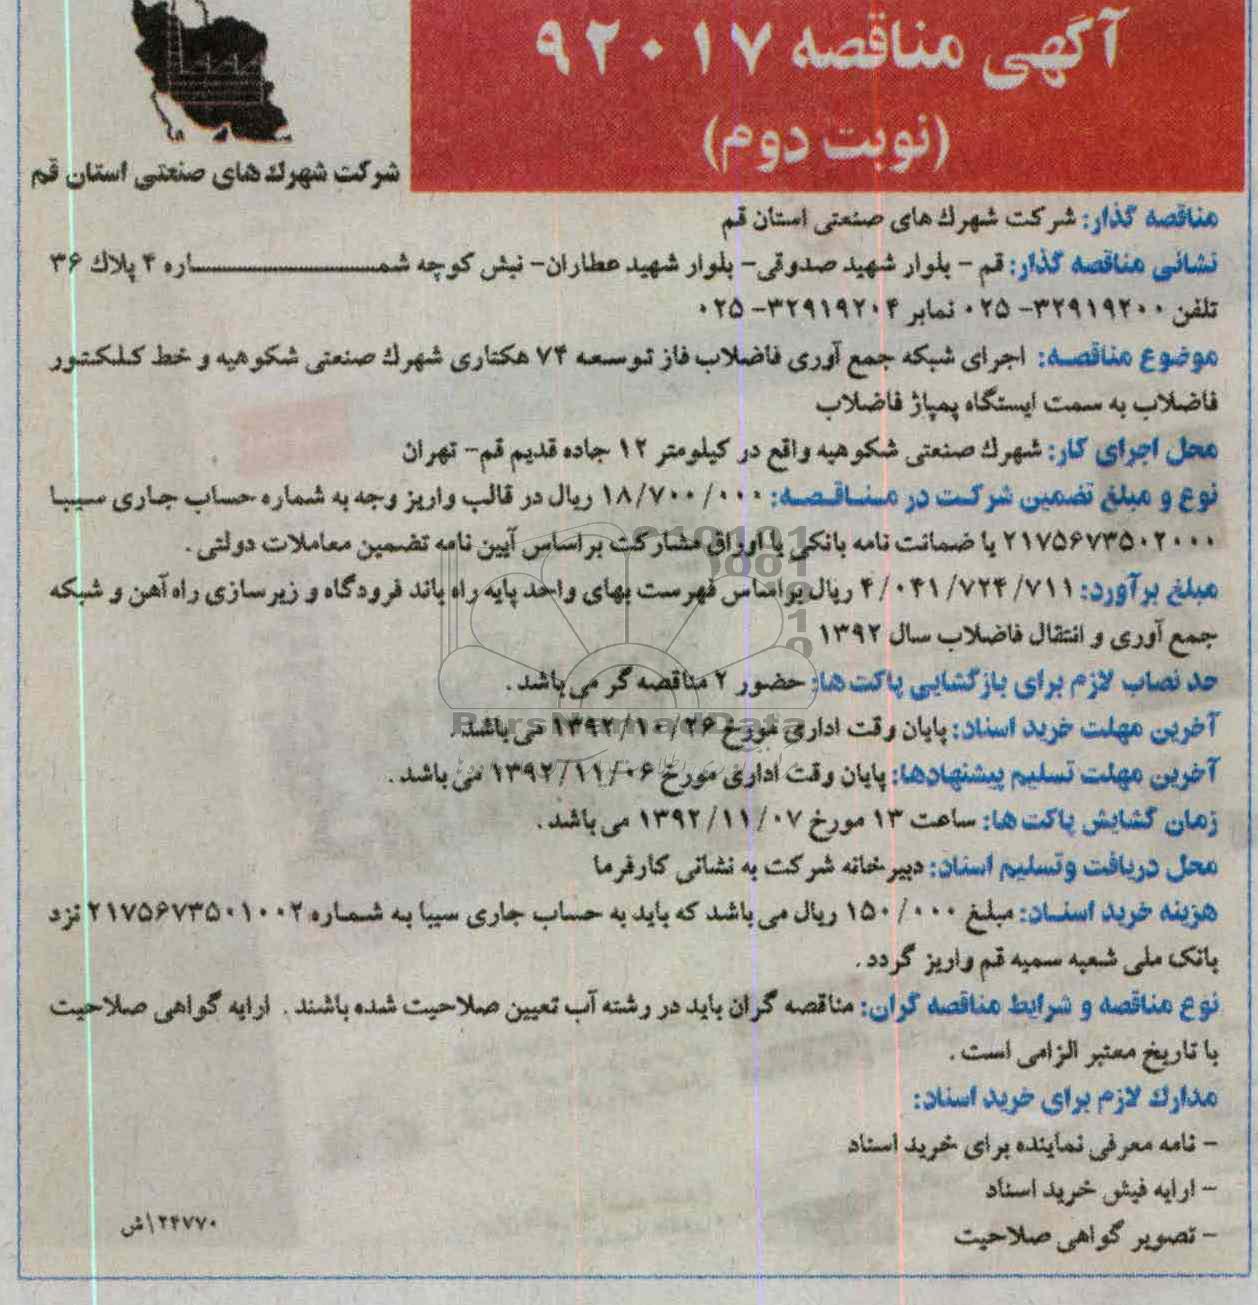 آگهی مناقصه ۹۲۰۱۷
(نوبت دوم)
شرکت شهرک های صنعتی استان قم
مناقصه گذار: شرکت شهرک های صنعتی استان قم
نشانی مناقصه گذار: قم - بلوار شهید صدوقی- بلوار شهید عطاران- نبش کوچه شمـــاره ۴ پلاک ۳۶
تلفن ۳۲۹۱۹۲۰۰-۰۲۵ نمابر ۳۲۹۱۹۲۰۴-۰۲۵
موضوع مناقصه: اجرای شبکه جمع آوری فاضلاب فاز توسعه ۷۴ هکتاری شهرک صنعتی شکوهیه و خط کلکتور
فاضلاب به سمت ایستگاه پمپاژ فاضلاب
محل اجرای کار: شهرک صنعتی شکوهیه واقع در کیلومتر ۱۲ جاده قدیم قم- تهران
نوع و مبلغ تضمین شرکت در مناقصه: ۱۸/۷۰۰/۰۰۰ ریال در قالب واریز وجه به شماره حساب جاری سیبا
۲۱۷۵۶۷۳۵۰۲۰۰۰ یا ضمانت نامه بانکی یا اوراق مشارکت براساس آیین نامه تضمین معاملات دولتی.
مبلغ برآورد: ۴/۰۴۱/۷۲۴/۷۱۱ ریال براساس فهرست بهای واحد پایه راه باند فرودگاه و زیرسازی راه آهن و شبکه
جمع آوری و انتقال فاضلاب سال ۱۳۹۲
حد نصاب لازم برای بازگشایی پاکت ها: حضور ۲ مناقصه گر می باشد.
آخرین مهلت خرید اسناد: پایان وقت اداری مورخ ۱۳۹۲/۱۰/۲۶ می باشد.
آخرین مهلت تسلیم پیشنهادها: پایان وقت اداری مورخ ۱۳۹۲/۱۱/۰۶ می باشد.
زمان گشایش پاکت ها: ساعت ۱۳ مورخ ۱۳۹۲/۱۱/۰۷ می باشد.
محل دریافت وتسلیم اسناد: دبیرخانه شرکت به نشانی کارفرما
هزینه خرید اسناد: مبلغ ۱۵۰/۰۰۰ ریال می باشد که باید به حساب جاری سیبا به شماره ۲۱۷۵۶۷۳۵۰۱۰۰۲ نزد
بانک ملی شعبه سمیه قم واریز گردد.
نوع مناقصه و شرایط مناقصه گران: مناقصه گران باید در رشته آب تعیین صلاحیت شده باشند. ارایه گواهی صلاحیت
با تاریخ معتبر الزامی است.
مدارک لازم برای خرید اسناد:
- نامه معرفی نماینده برای خرید اسناد
- ارایه فیش خرید اسناد
- تصویر گواهی صلاحیت
۲۴۷۷۰\ش
ParsNamadData